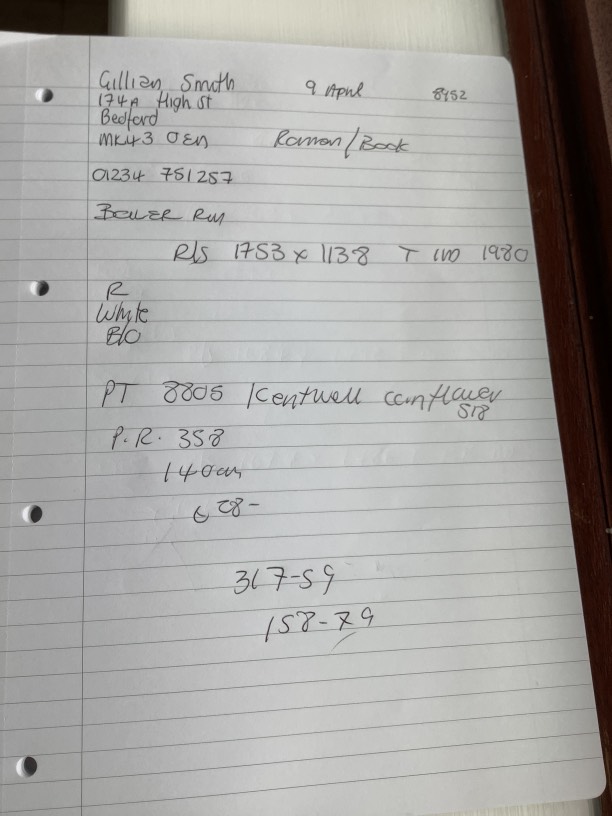 Gillian Smith 9 April 8452
174A High St
Bedford
MK43 0EN Roman/Book
01234 751257
BOILER RM
R/S 1753 x 1138 T 1980
R
White
B/O
PT 8805 Kentwell cornflower
518
P.R. 358
140cm
628-
317-59
158-79